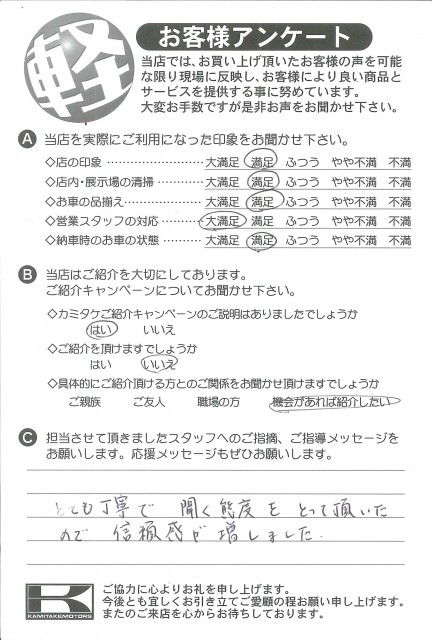 軽
お客様アンケート
当店では、お買い上げ頂いたお客様の声を可能
な限り現場に反映し、お客様により良い商品と
サービスを提供する事に努めています。
大変お手数ですが是非お声をお聞かせ下さい。
A 当店を実際にご利用になった印象をお聞かせ下さい。
◇店の印象 ………………… 大満足 満足 ふつう やや不満 不満
◇店内・展示場の清掃 ………… 大満足 満足 ふつう やや不満 不満
◇お車の品揃え ……………… 大満足 満足 ふつう やや不満 不満
◇営業スタッフの対応 ………… 大満足 満足 ふつう やや不満 不満
◇納車時のお車の状態 ………… 大満足 満足 ふつう やや不満 不満
B 当店はご紹介を大切にしております。
ご紹介キャンペーンについてお聞かせ下さい。
◇カミタケご紹介キャンペーンのご説明はありましたでしょうか
はい いいえ
◇ご紹介を頂けますでしょうか
はい いいえ
◇具体的にご紹介頂ける方とのご関係をお聞かせ頂けますでしょうか
ご親族 ご友人 職場の方 機会があれば紹介したい
C 担当させて頂きましたスタッフへのご指摘、ご指導メッセージを
お願いします。応援メッセージもぜひお願いします。
とても丁寧で 聞く態度を とって頂いた
ので 信頼感が 増しました.
K
KAMITAKEMOTORS
ご協力に心よりお礼を申し上げます。
今後とも宜しくお引き立てご愛顧の程お願い申し上げます。
またのご来店を心からお待ちしております。